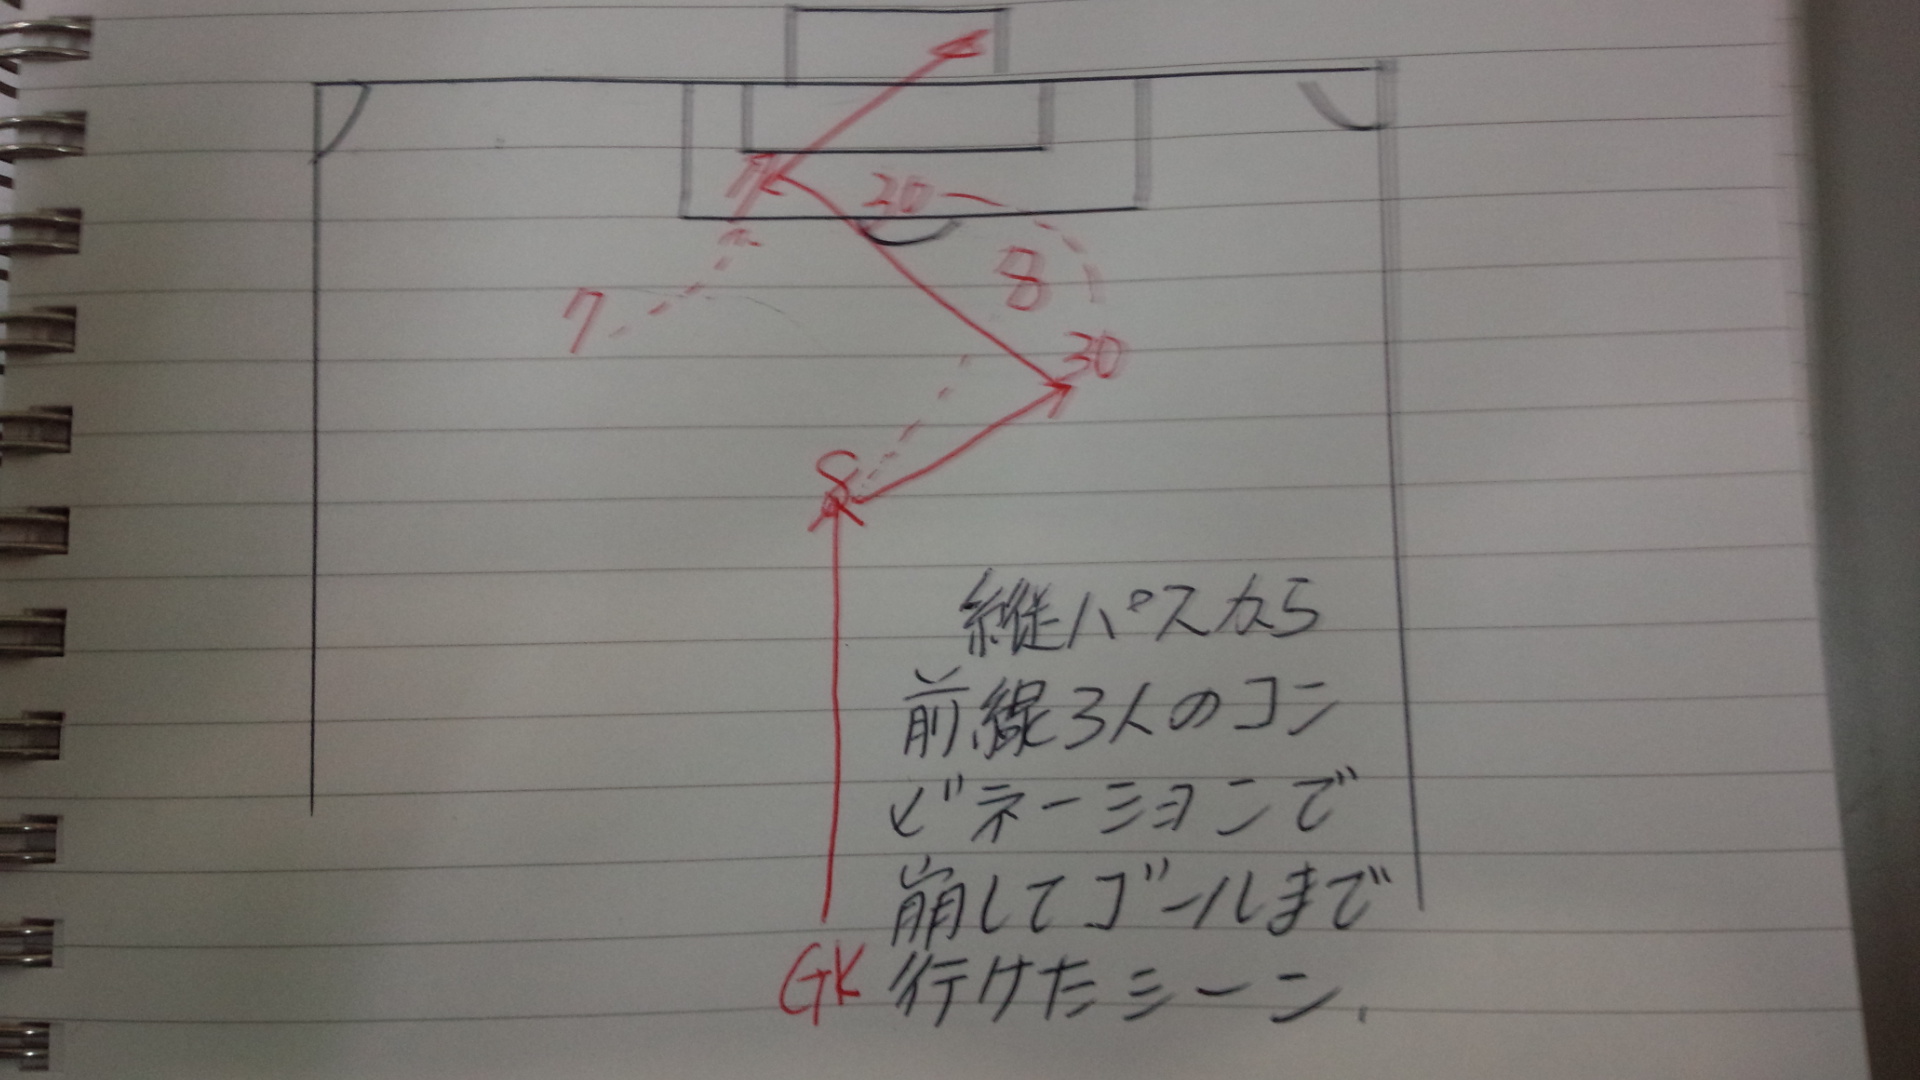 7
30
8
7
30
8
縦パスから
前線3人のコン
ビネーションで
崩してゴールまで
GK 行けたシーン.